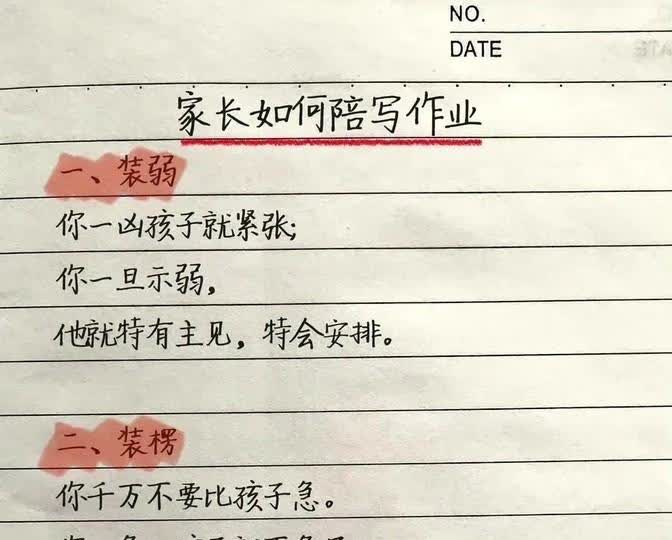 NO.
DATE
家长如何陪写作业
一、装弱
你一凶孩子就紧张;
你一旦示弱,
他就特有主见,特会安排。
二、装楞
你千万不要比孩子急。